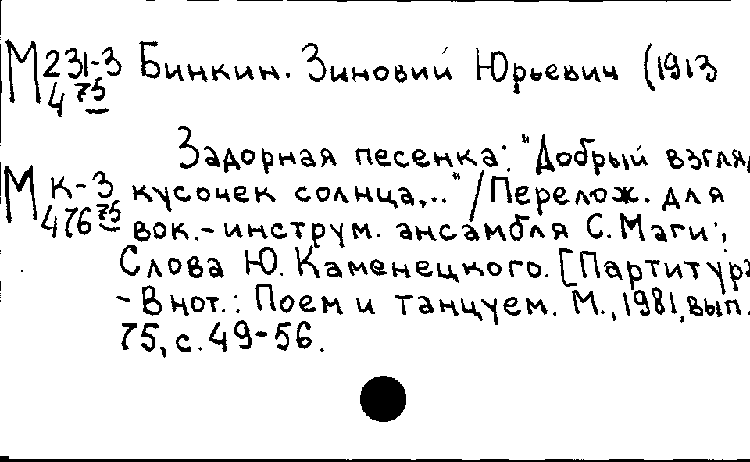 М231-3 Бинкин. Зиновий Юрьевич (1913
4 75
Задорная песенка: "Добрый взгля
М К-3 кусочек солнца,.." / Перелож. для
476 75 вок.-инструм. ансамбля С. Маги;
Слова Ю. Каменецкого. [Партитура
- В нот.: Поем и танцуем. М., 1981, вып.
75, с. 49-56.